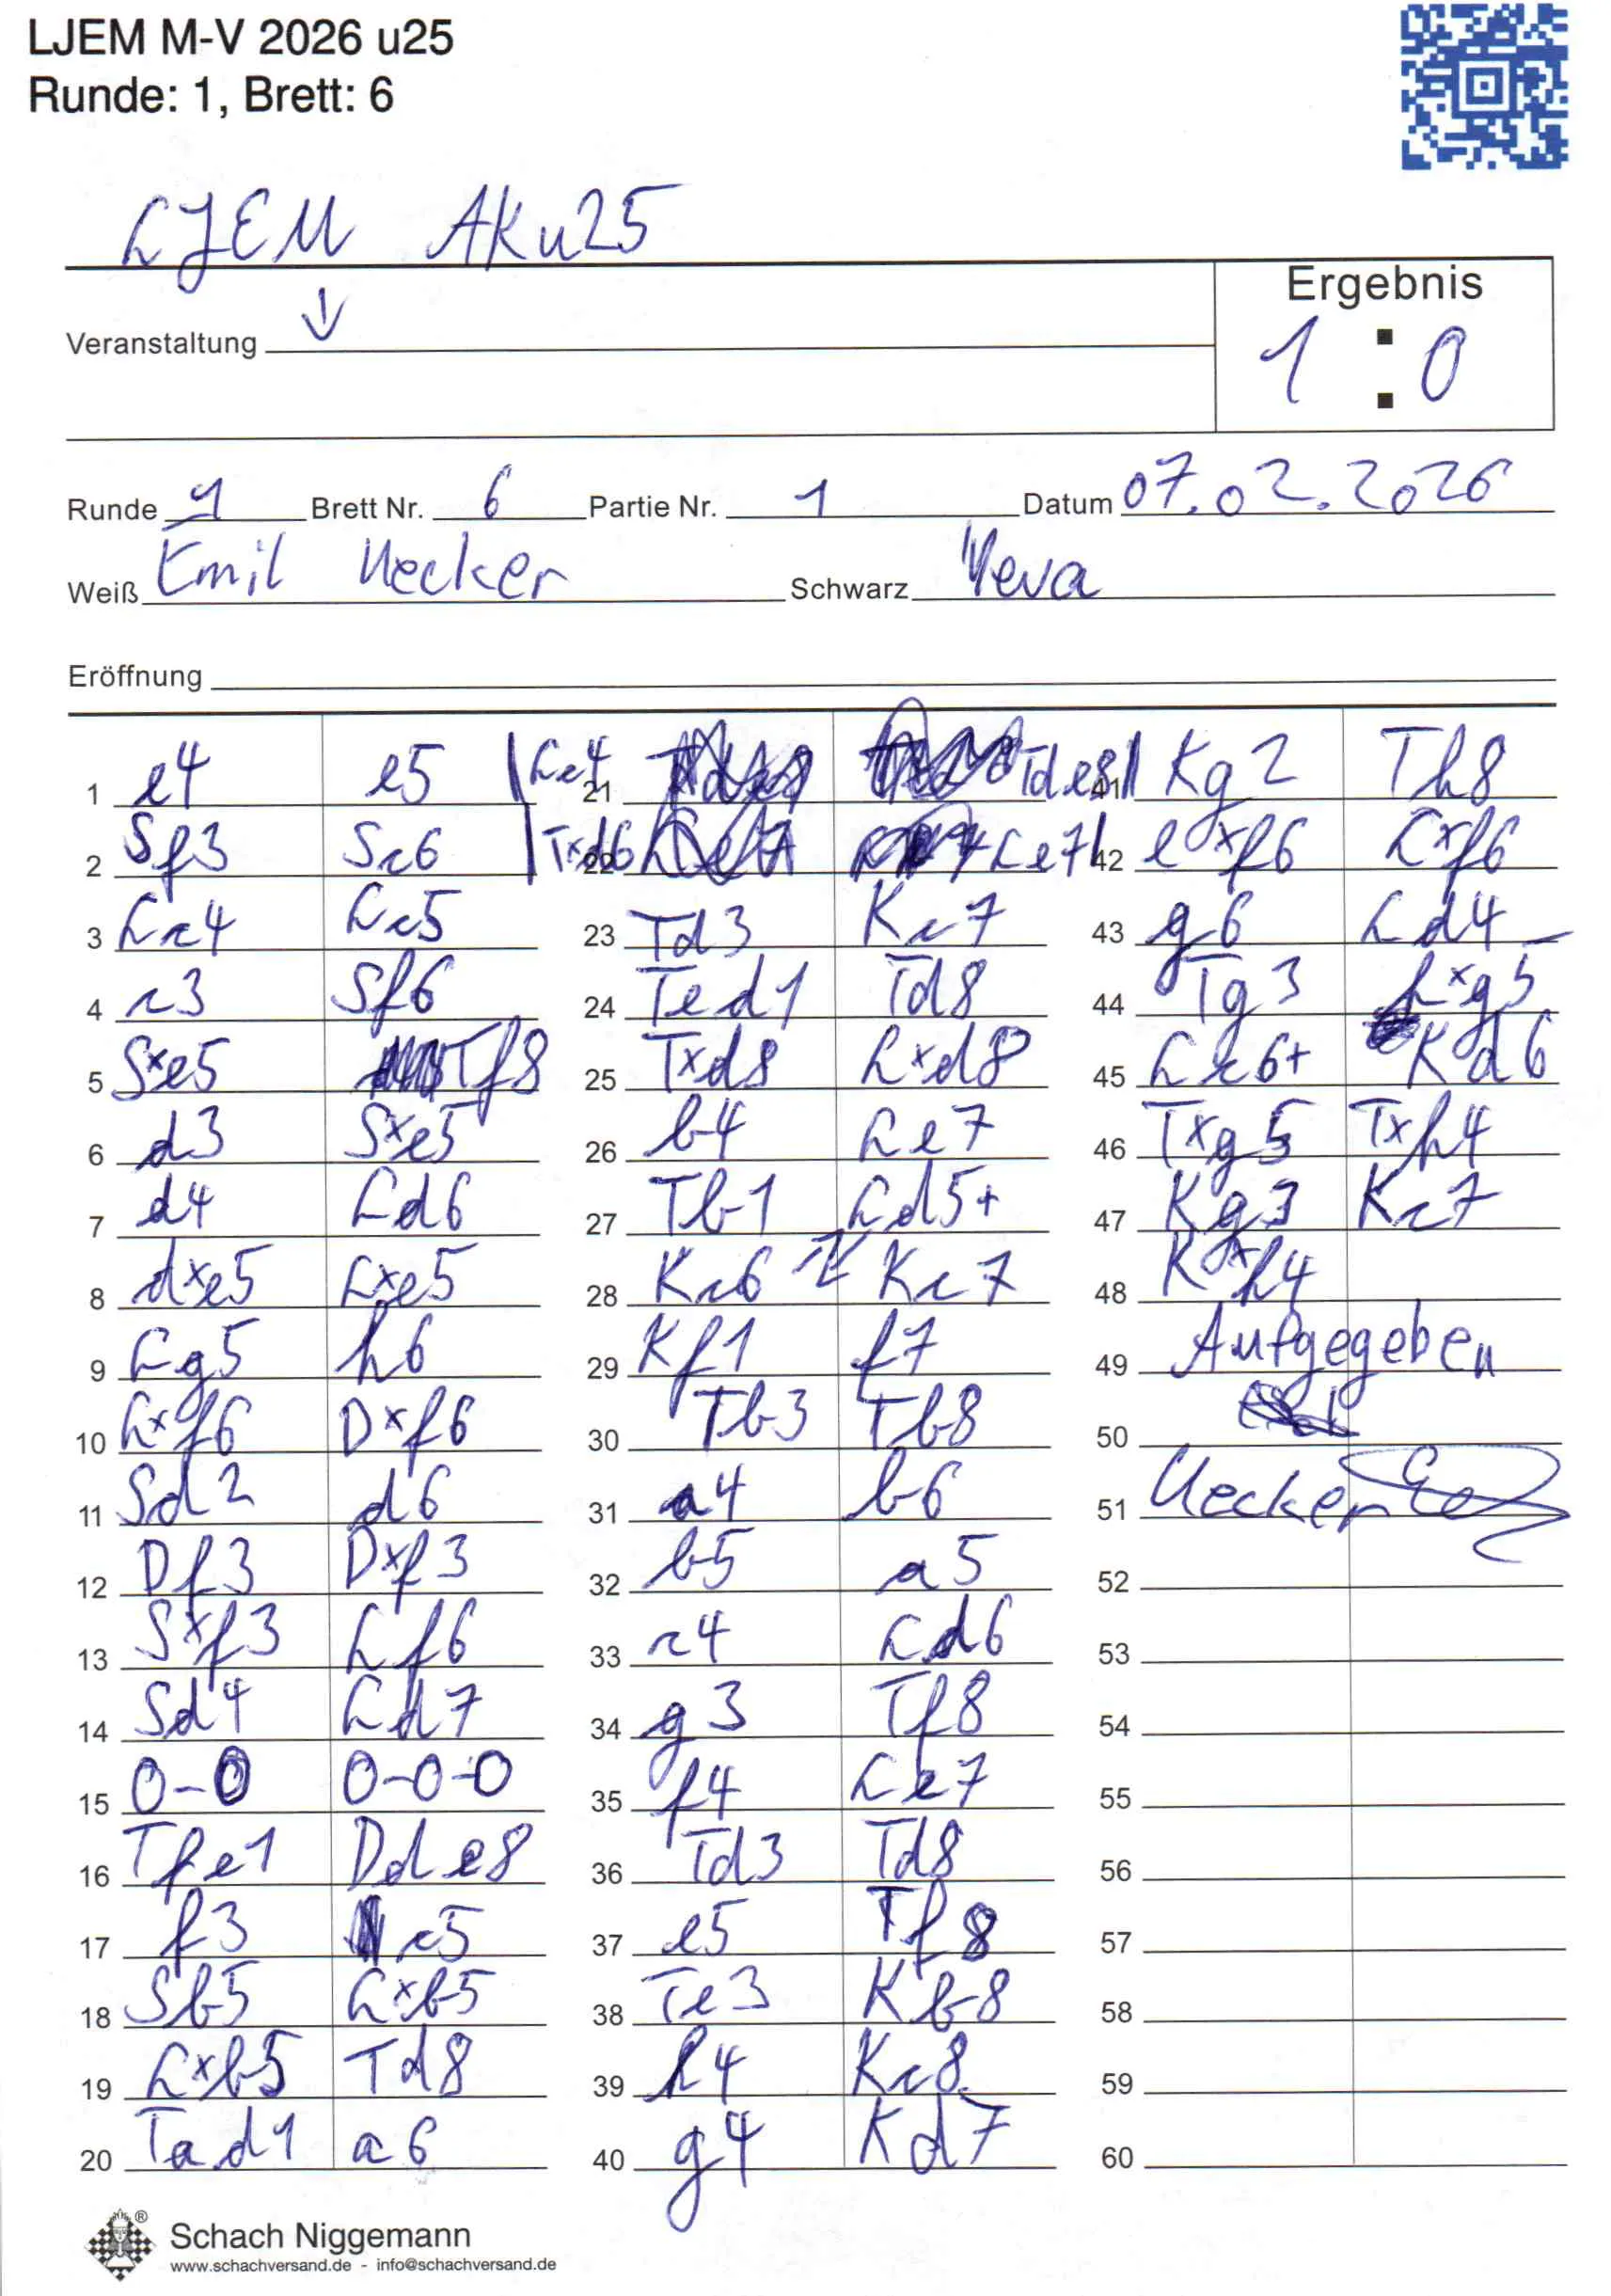 LJEM M-V 2026 u25
Runde: 1, Brett: 6
LJEM AKu25
Ergebnis
1 : 0
Veranstaltung ↓
Runde 1 Brett Nr. 6 Partie Nr. 1 Datum 07.02.2026
Weiß Emil Uecker Schwarz Yeva
Eröffnung
1 e4 e5
2 Sf3 Sc6
3 Lc4 Lc5
4 c3 Sf6
5 Sxe5 Tf8
6 d3 Sxe5
7 d4 Ld6
8 dxe5 Lxe5
9 Lg5 h6
10 Lxf6 Dxf6
11 Sd2 d6
12 Df3 Dxf3
13 Sxf3 Lf6
14 Sd4 Ld7
15 0-0 0-0-0
16 Tfe1 Dde8
17 f3 c5
18 Sb5 Lxb5
19 Lxb5 Td8
20 Tad1 a6
21 Lc4 Tde8
22 Txd6 Le7
23 Td3 Kc7
24 Ted1 Td8
25 Txd8 Lxd8
26 b4 Le7
27 Tb1 Ld5+
28 Kc6 Kc7
29 Kf1 f7
30 Tb3 Tb8
31 a4 b6
32 b5 a5
33 c4 Ld6
34 g3 Tf8
35 f4 Le7
36 Td3 Td8
37 e5 Tf8
38 Te3 Kb8
39 h4 Kc8
40 g4 Kd7
41 Kg2 Th8
42 exf6 Lxf6
43 g6 Ld4
44 Tg3 Lxg5
45 Lc6+ Kd6
46 Txg5 Txh4
47 Kg3 Kc7
48 Kxh4
49 Aufgegeben
50
51 Uecker
52
53
54
55
56
57
58
59
60
Schach Niggemann
www.schachversand.de - info@schachversand.de